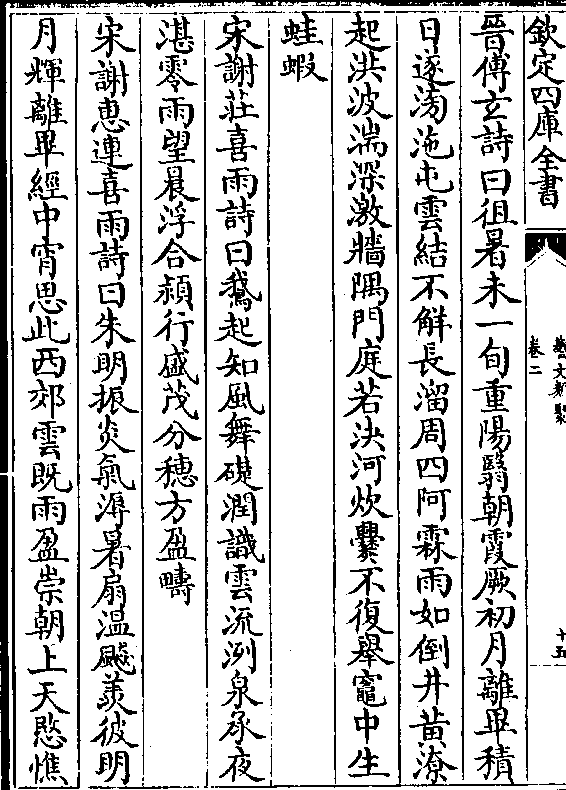 欽定四庫全書
藝文類聚
卷二
十五
晉傅玄詩曰徂暑未一旬重陽翳朝霞厥初月離畢積
日遂滂沲屯雲結不解長溜周四阿霖雨如倒井黃潦
起洪波湍深激牆隅門庭若決河炊爨不復舉竈中生
蛙蝦
宋謝莊喜雨詩曰鵞起知風舞礎潤識雲流洌泉承夜
湛零雨望晨浮合潁行盛茂分穗方盈疇
宋謝惠連喜雨詩曰朱明振炎氣溽暑扇温飈羨彼明
月輝離畢經中宵思此西郊雲既雨盈崇朝上天愍憔